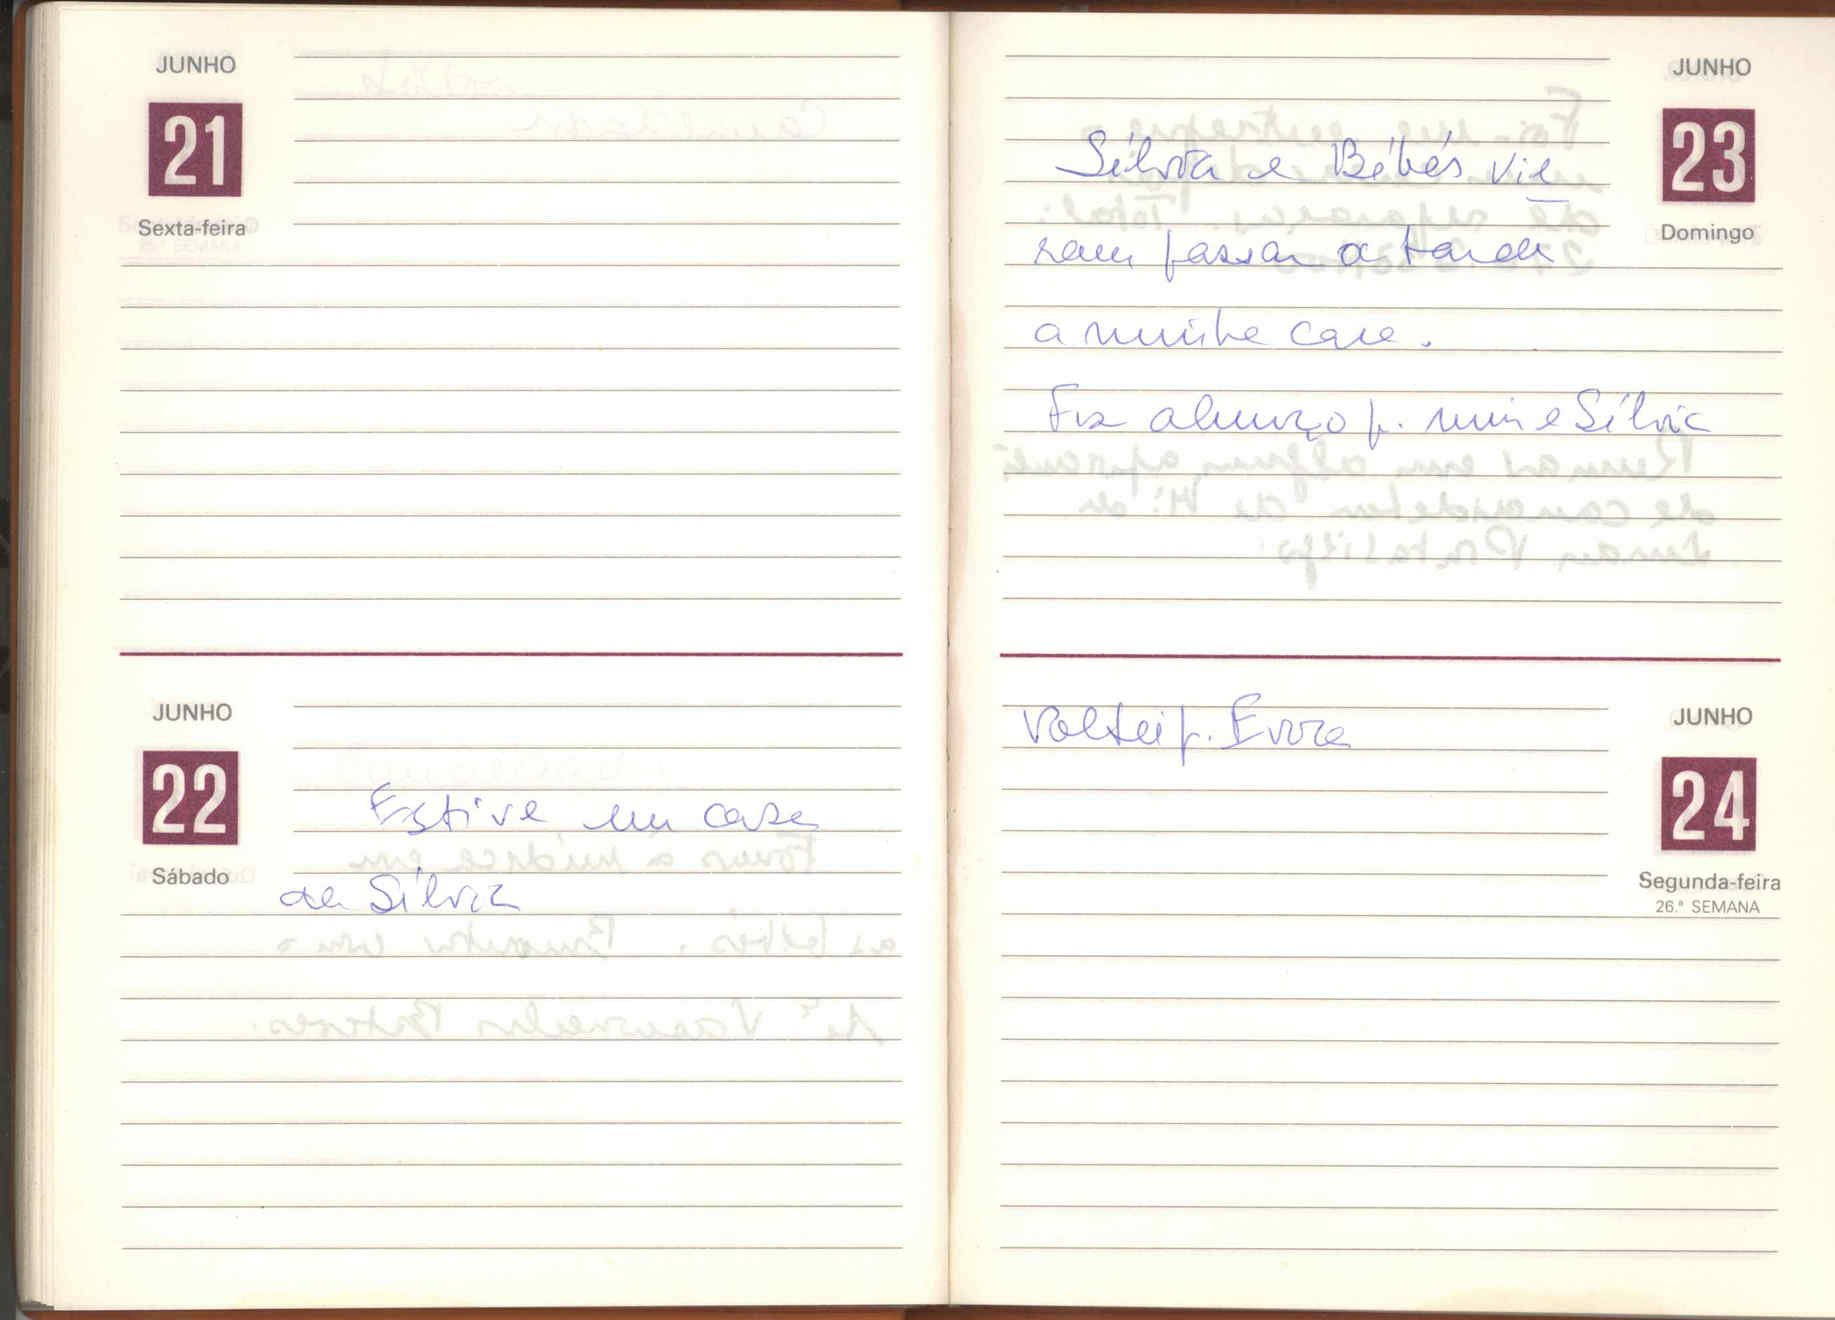 JUNHO
21
Sexta-feira
JUNHO
22
Sábado
Estive em casa
da Sílvia
JUNHO
23
Domingo
Sílvia e Bébés vie
ram passar a tarde
a minha casa.
Fiz almoço p. mim e Sílvia
JUNHO
24
Segunda-feira
26.ª SEMANA
Voltei p. Évora